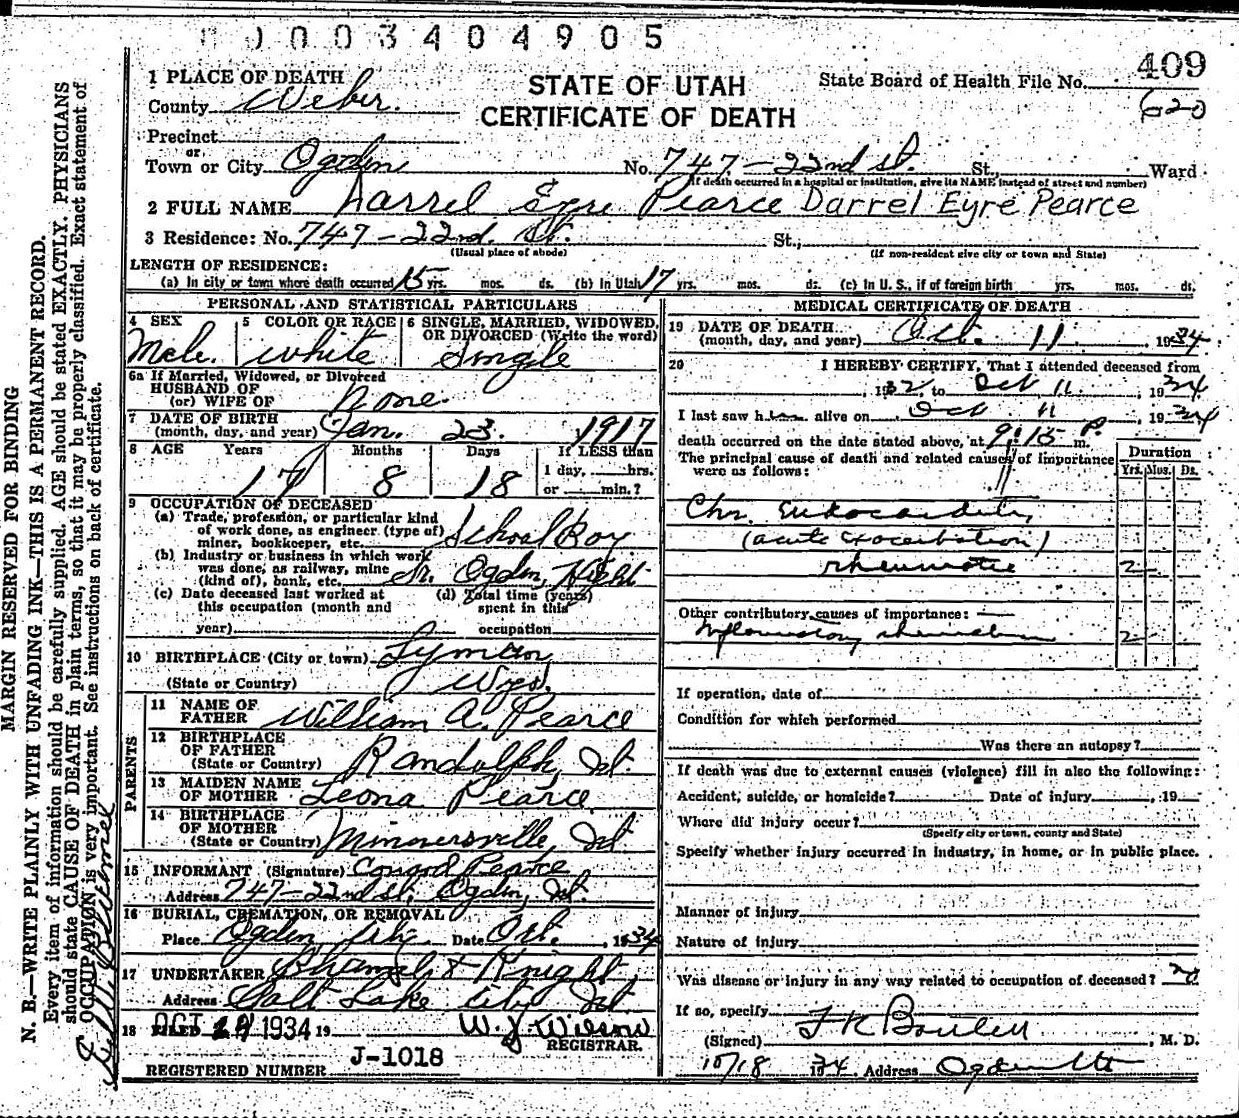 0003404905
409
STATE OF UTAH
CERTIFICATE OF DEATH
State Board of Health File No.
620
1 PLACE OF DEATH
County Weber.
Precinct
or
Town or City Ogden No. 747.-22nd st. St., Ward
(If death occurred in a hospital or institution, give its NAME instead of street and number)
2 FULL NAME Darrel Eyre Pearce Darrel Eyre Pearce
3 Residence: No. 747-22nd. St. St.,
(Usual place of abode) (If non-resident give city or town and State)
LENGTH OF RESIDENCE:
(a) In city or town where death occurred 15 yrs. mos. ds. (b) In Utah 17 yrs. mos. ds. (c) In U. S., if of foreign birth yrs. mos. ds.
PERSONAL AND STATISTICAL PARTICULARS
4 SEX 5 COLOR OR RACE 6 SINGLE, MARRIED, WIDOWED, OR DIVORCED (Write the word)
Male. white Single
6a If Married, Widowed, or Divorced
HUSBAND OF
(or) WIFE OF None.
7 DATE OF BIRTH
(month, day, and year) Jan. 23. 1917
8 AGE Years Months Days If LESS than
17 8 18 1 day, hrs.
or min.?
9 OCCUPATION OF DECEASED
(a) Trade, profession, or particular kind
of work done, as engineer (type of)
miner, bookkeeper, etc. School Boy
(b) Industry or business in which work
was done, as railway, mine
(kind of), bank, etc. Sr. Ogden, High
(c) Date deceased last worked at (d) Total time (years)
this occupation (month and spent in this
year) occupation
10 BIRTHPLACE (City or town) Lyman,
(State or Country) Wyo.
PARENTS
11 NAME OF
FATHER William A. Pearce
12 BIRTHPLACE
OF FATHER
(State or Country) Randolph, Ut.
13 MAIDEN NAME
OF MOTHER Leona Pearce
14 BIRTHPLACE
OF MOTHER
(State or Country) Minnersville, Ut
15 INFORMANT (Signature) Pearce
Address 747-22nd st, Ogden, Ut.
16 BURIAL, CREMATION, OR REMOVAL
Place Ogden City. Date Oct. , 1934
17 UNDERTAKER & Knight
Address Salt Lake City Ut.
18 FILED OCT 1934 19
W. J. Wilson
REGISTRAR.
J-1018
REGISTERED NUMBER
MEDICAL CERTIFICATE OF DEATH
19 DATE OF DEATH
(month, day, and year) Oct. 11 , 1934
20 I HEREBY CERTIFY, That I attended deceased from
, 1932, to Oct 11 , 1934
I last saw him alive on Oct 11 , 1934
death occurred on the date stated above, at 9:15 P. m.
The principal cause of death and related causes of importance
were as follows:
Duration
Yrs. Mos. Ds.
Chr. Endocarditis,
(acute exacerbation)
rheumatic 2
Other contributory causes of importance:
Inflammatory rheumatism 2
If operation, date of
Condition for which performed
Was there an autopsy?
If death was due to external causes (violence) fill in also the following:
Accident, suicide, or homicide? Date of injury , 19
Where did injury occur?
(Specify city or town, county and State)
Specify whether injury occurred in industry, in home, or in public place.
Manner of injury
Nature of injury
Was disease or injury in any way related to occupation of deceased? no
If so, specify
(Signed) , M. D.
10/18 1934 Address Ogden Ut
MARGIN RESERVED FOR BINDING
N. B.—WRITE PLAINLY WITH UNFADING INK—THIS IS A PERMANENT RECORD.
Every item of information should be carefully supplied. AGE should be stated EXACTLY. PHYSICIANS
should state CAUSE OF DEATH in plain terms, so that it may be properly classified. Exact statement of
OCCUPATION is very important. See instructions on back of certificate.